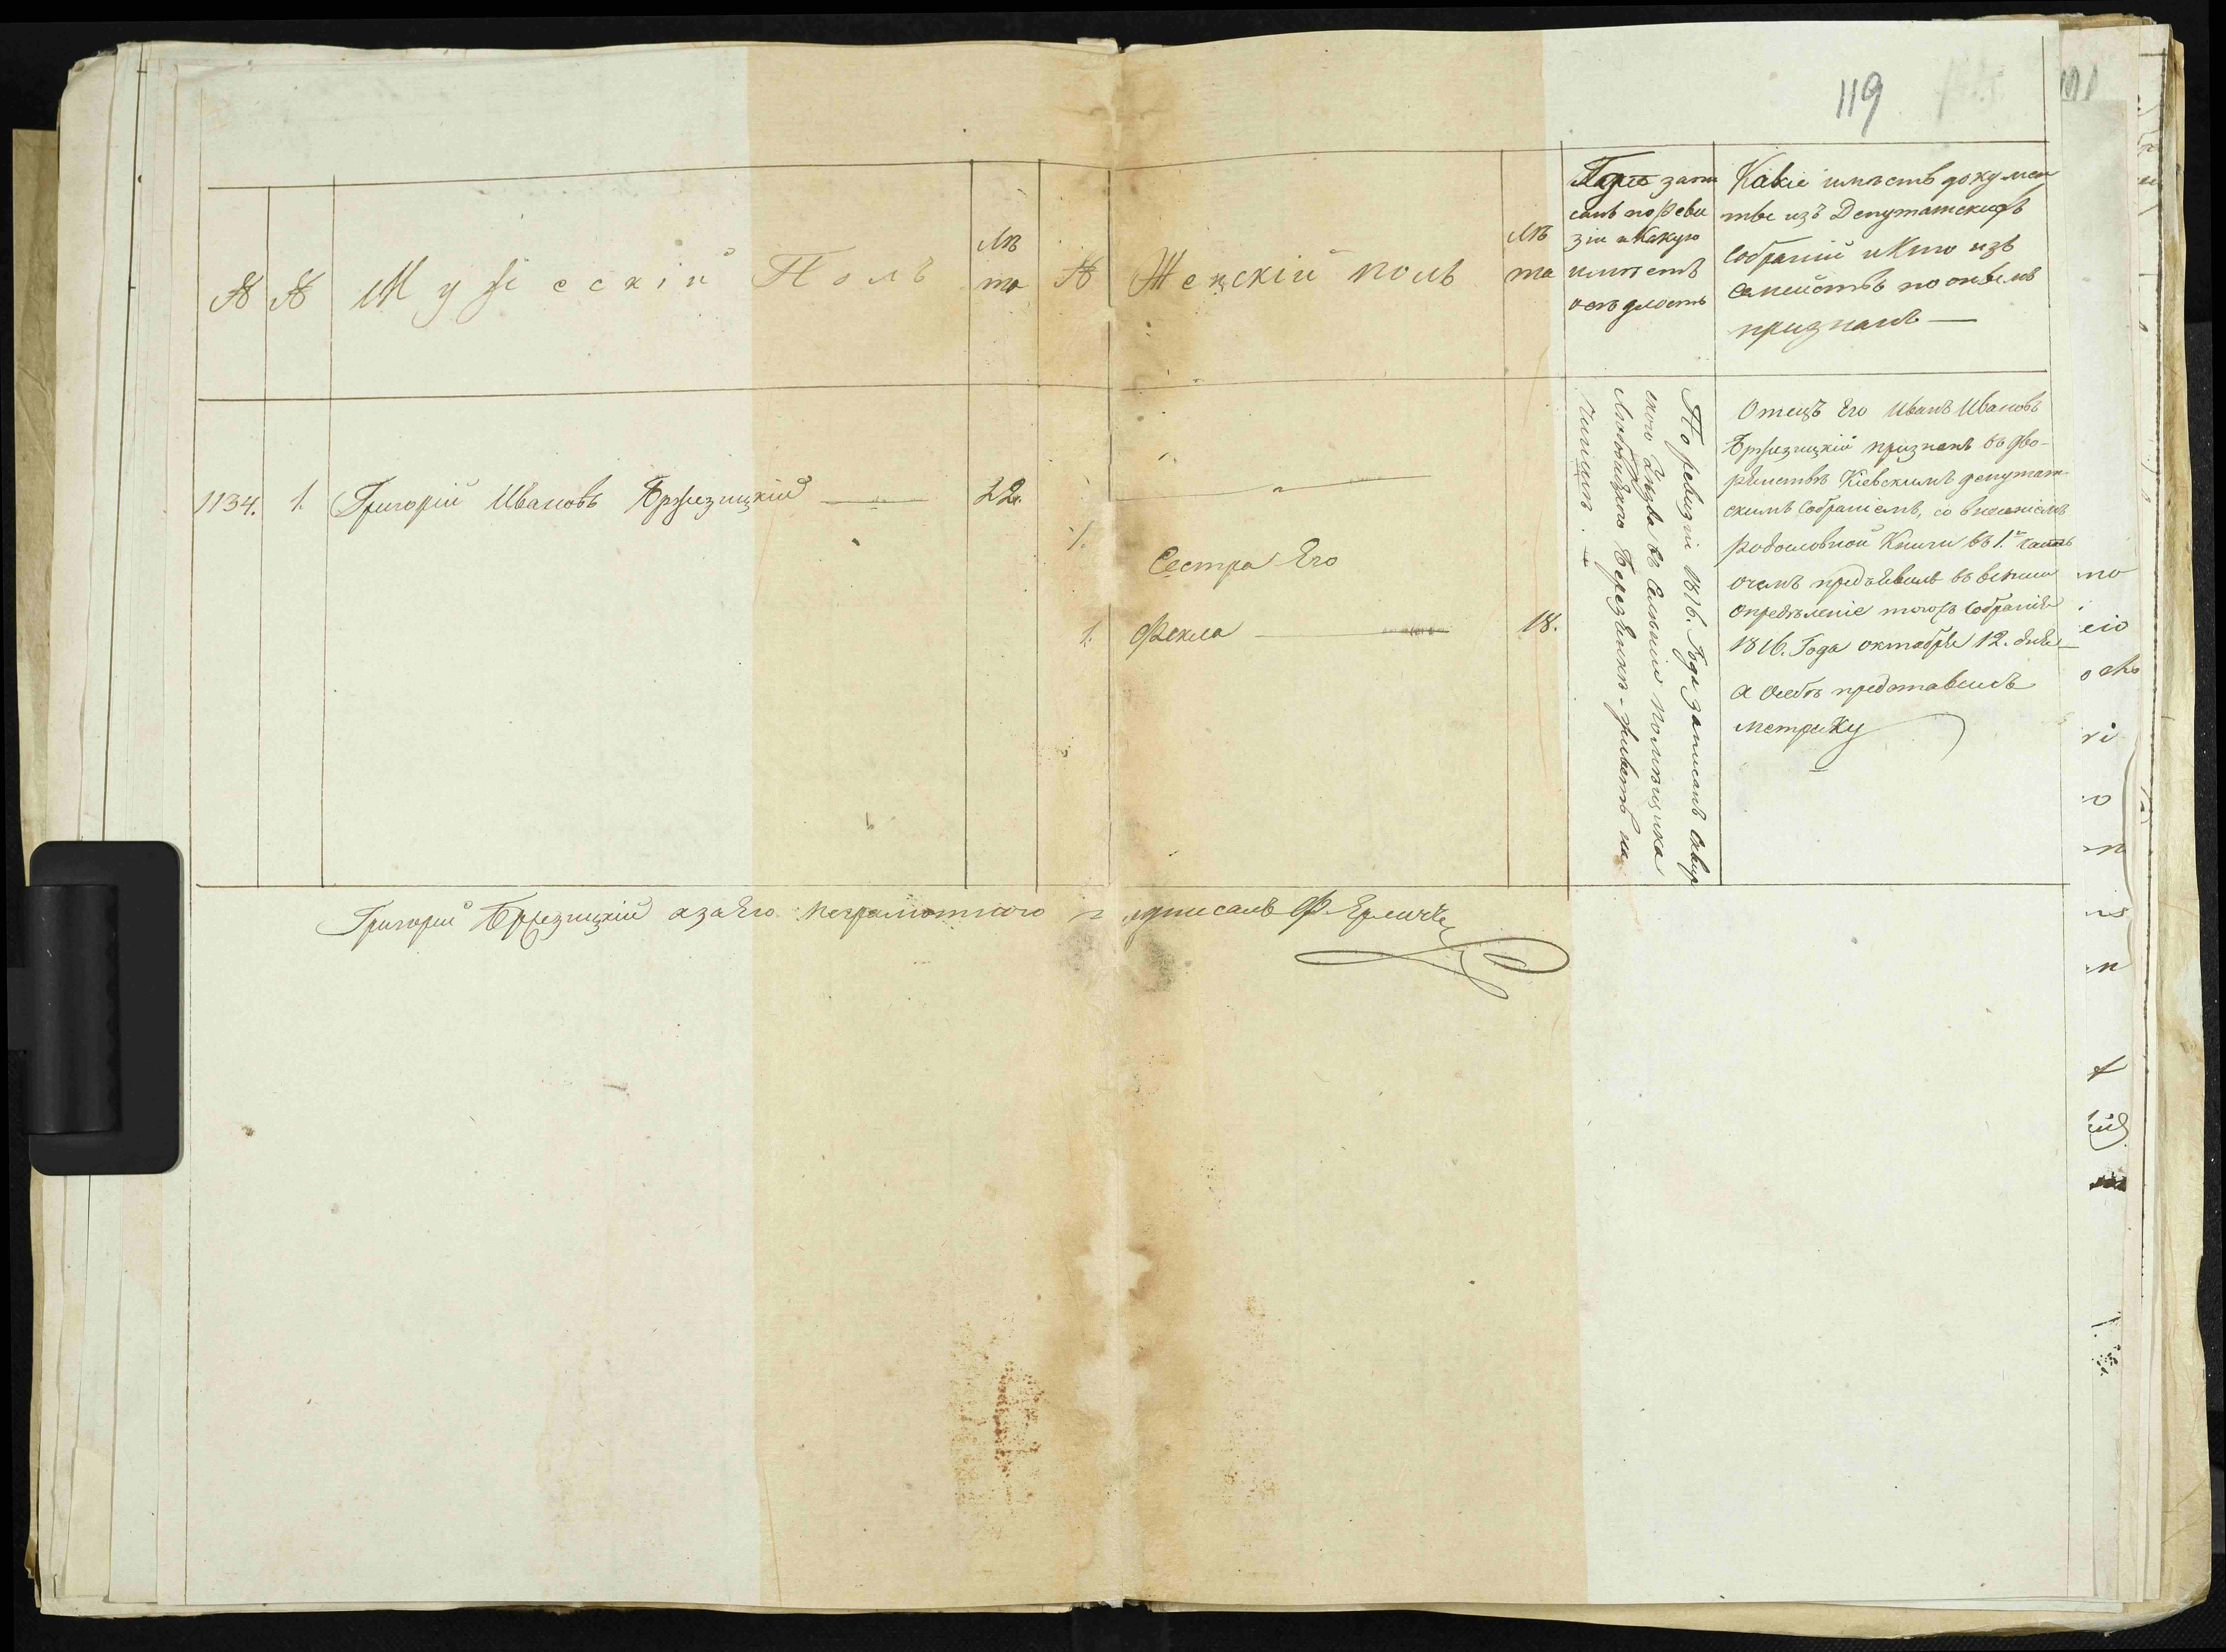 119
№
№
Мужескій Полъ
Лѣ
та
№
Женскій полъ
лѣ
та
Гдѣ запи
санъ по реви
зіи и какую
имѣетъ
осѣдлость
Какіе имѣетъ докумен
ты изъ Депутатскихъ
Собраній и кто изъ
Семействъ по онымъ
признанъ —
1134.
1.
Григорій Ивановъ Бржезицкій
22.
1.
Сестра Его
1.
Фекла
18.
По ревизіи 1816. Года записанъ Сквир
ского уѣзда въ селеніи помѣщика
Березянкѣ - живетъ на
чиншѣ.
Отецъ Его Иванъ Ивановъ
Бржезицкій признанъ въ дво-
рянствѣ Кіевскимъ депутат-
скимъ Собраніемъ, со внесеніемъ
родословной Книги въ 1.ю часть
о чемъ предъявилъ въ
опредѣленіе тогожъ Собранія
1816. Года октября 12. дня
а о себѣ представилъ
метрику
Григорій Бржезицкій а за Его неграмотного подписалъ Ф.